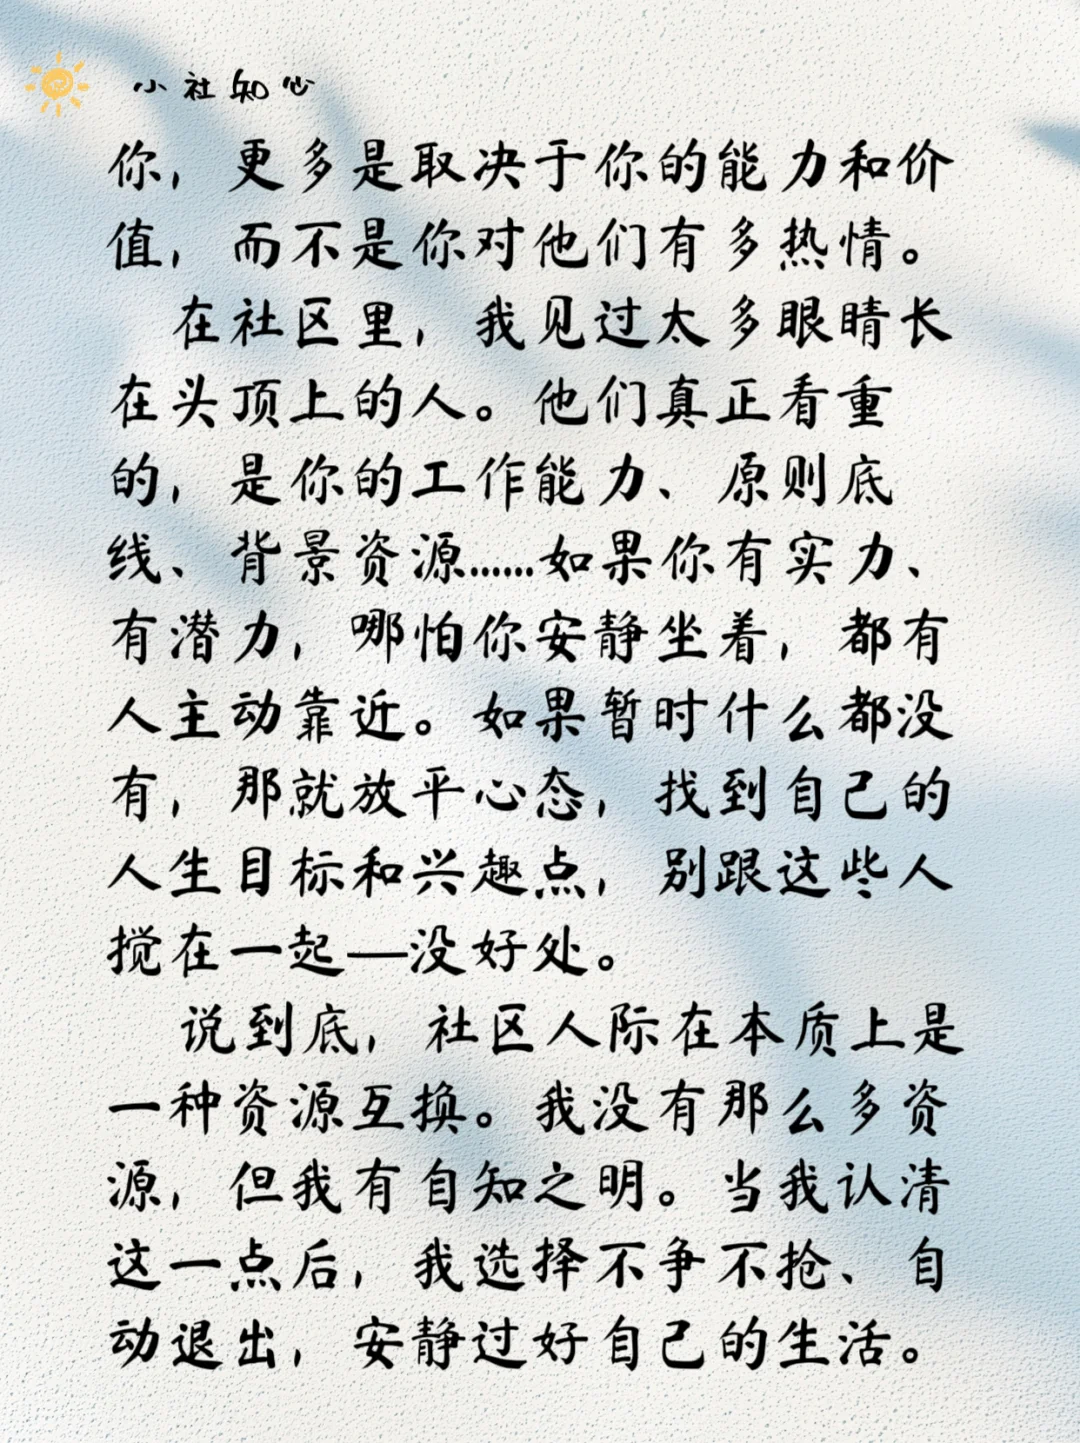 小社知心
你，更多是取决于你的能力和价
值，而不是你对他们有多热情。
在社区里，我见过太多眼睛长
在头顶上的人。他们真正看重
的，是你的工作能力、原则底
线、背景资源......如果你有实力、
有潜力，哪怕你安静坐着，都有
人主动靠近。如果暂时什么都没
有，那就放平心态，找到自己的
人生目标和兴趣点，别跟这些人
搅在一起—没好处。
说到底，社区人际在本质上是
一种资源互换。我没有那么多资
源，但我有自知之明。当我认清
这一点后，我选择不争不抢、自
动退出，安静过好自己的生活。